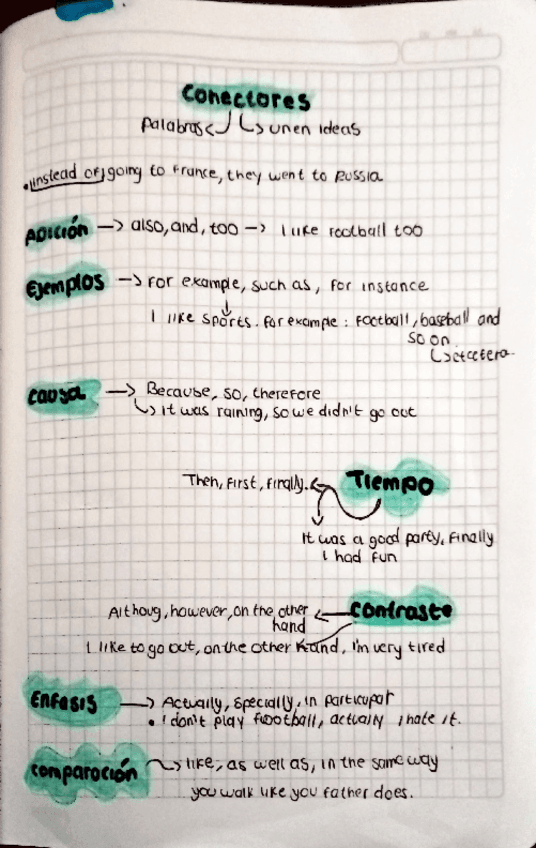 Conectores
Palabras unen ideas
instead of going to France, they went to Russia
Adición → also, and, too → I like football too
Ejemplos → for example, such as, for instance
I like sports. for example: football, baseball and
so on
etcetera
Causa → Because, so, therefore
it was raining, so we didn't go out
Then, first, finally. Tiempo
It was a good party, finally
I had fun
Althoug, however, on the other Contraste
hand
I like to go out, on the other hand, I'm very tired
Enfasis → Actually, specially, in particupar
• I don't play football, actually I hate it.
Comparación → like, as well as, in the same way
you walk like you father does.